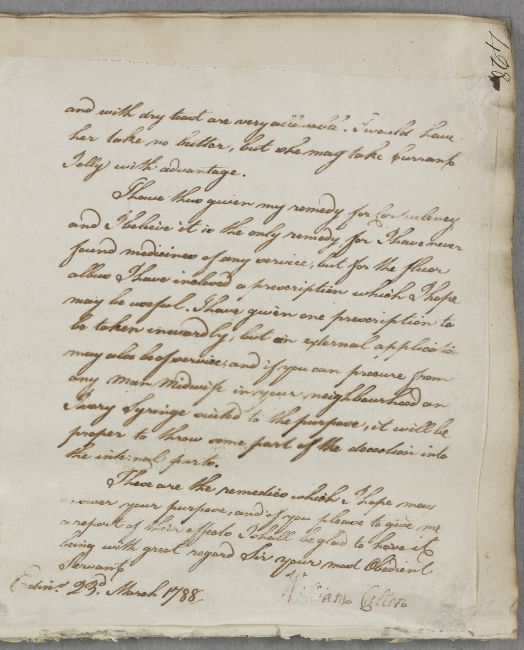 428
and with dry toast are very admissable. I would have
her take no butter, but she may take Curran$^{t}$
Jelly with advantage.
I have thus given my remedy for Corpulency
and I believe it is the only remedy, for I have never
found medicines of any service, but for the fluor
albus I have inclosed a prescription which I hope
may be useful. I have given one prescription to
be taken inwardly, but an external application
may also be of service, and if you can procure from
any Man Midwife in your neighbourhood an
Ivory Syringe suited to the purpose, it will be
proper to throw some part of the decoction into
the internal parts.
These are the remedies which I hope may
answer your purpose, and if you please to give me
a report of their effects I shall be glad to have it
being with great regard Sir your most Obedient
Servant
Edinr. 23d. March 1788. William Cullen